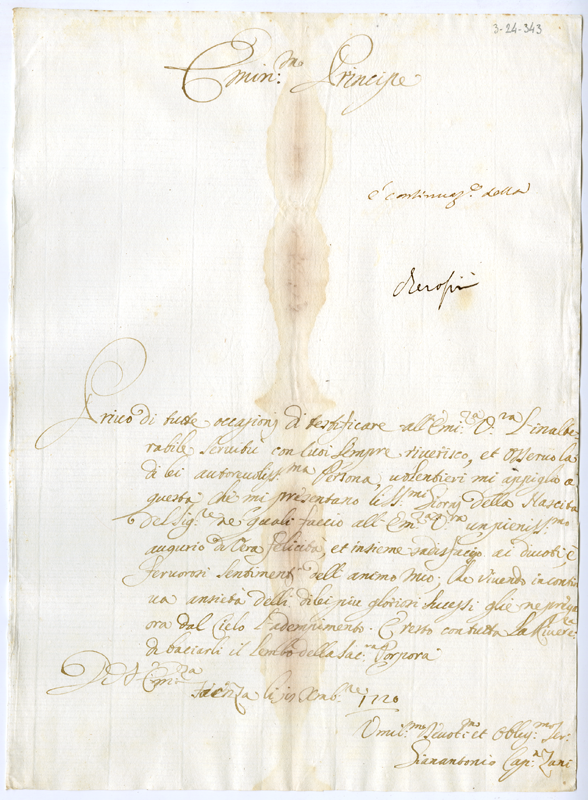 3-24-343
Emin.mo Principe
è continuaz.e della
Privo di tutte occasioni di testificare all'Em.za V.ra l'inalte
rabile servitù con cui sempre riverisco, et osservo la
di lei autorevoliss.ma Persona, volentieri mi appiglio a
questa che mi presentano li SSmi Giorni della Nascita
del Sig.re ne quali faccio all'Em.za V.ra un pieniss.mo
augurio di vera felicità, et insieme sodisfaccio ai divoti, e
fervorosi sentimenti dell'animo mio; che vivendo in contin
ua ansietà delli di lei più gloriosi sucessi gliene prega
ora dal Cielo l'adempimento. E resto con tutta la River.za
di baciarli il lembo della Sac.ra Porpora
Di V. Em.za
Faenza li 19 Xmb.re 1720
Umil.mo Devot.mo et Oblig.mo Ser.
Gianantonio Cap.n Zani